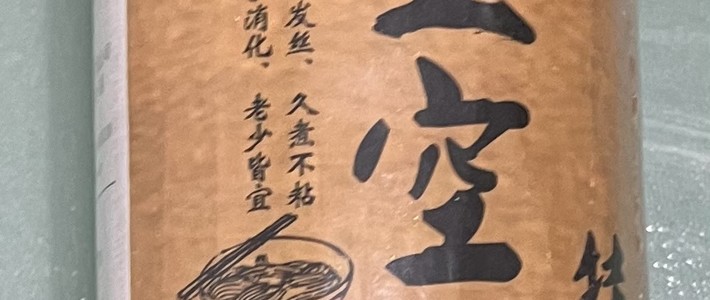 空
发丝、久煮不粘
消化、老少皆宜